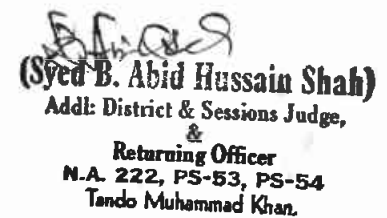 (Syed B. Abid Hussain Shah)
Addl: District & Sessions Judge,
&
Returning Officer
N.A. 222, PS-53, PS-54
Tando Muhammad Khan.